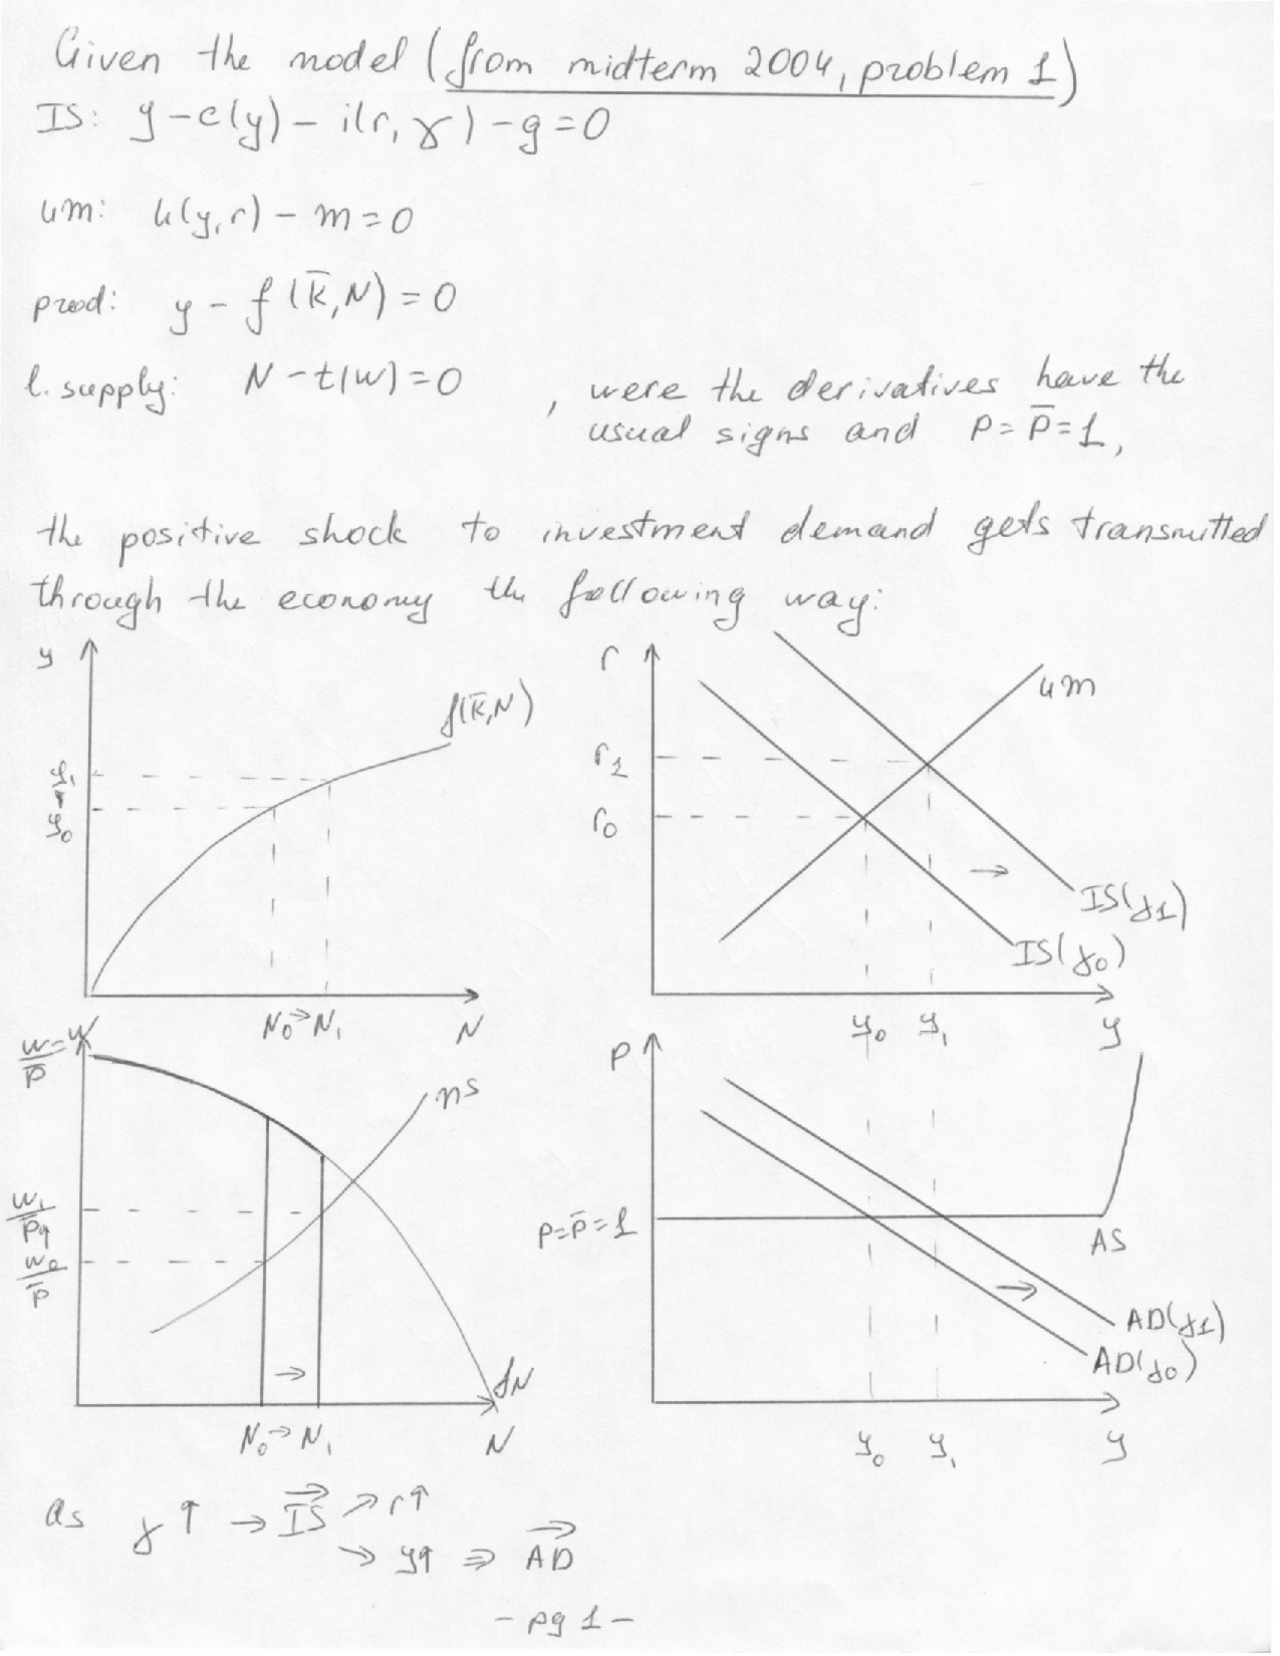 Given the model (from midterm 2004, problem 1)
IS: y - c(y) - i(r, γ) - g = 0
LM: L(y, r) - m = 0
prod: y - f(K̄, N) = 0
l. supply: N - t(w) = 0 , were the derivatives have the
usual signs and P = P̄ = 1,
the positive shock to investment demand gets transmitted
through the economy the following way:
y
f(K̄, N)
y₀ → y₁
N₀ → N₁
N
r
LM
r1
r0
IS(γ1)
IS(γ0)
y₀ y₁ y
w/P̄ = w
ns
w₁/P̄
w₀/P̄
fN
N₀ → N₁ N
P
P = P̄ = 1
AS
AD(γ1)
AD(γ0)
y₀ y₁ y
As γ↑ → IS→ ↗ r↑
→ y↑ ⇒ AD→
- pg 1 -